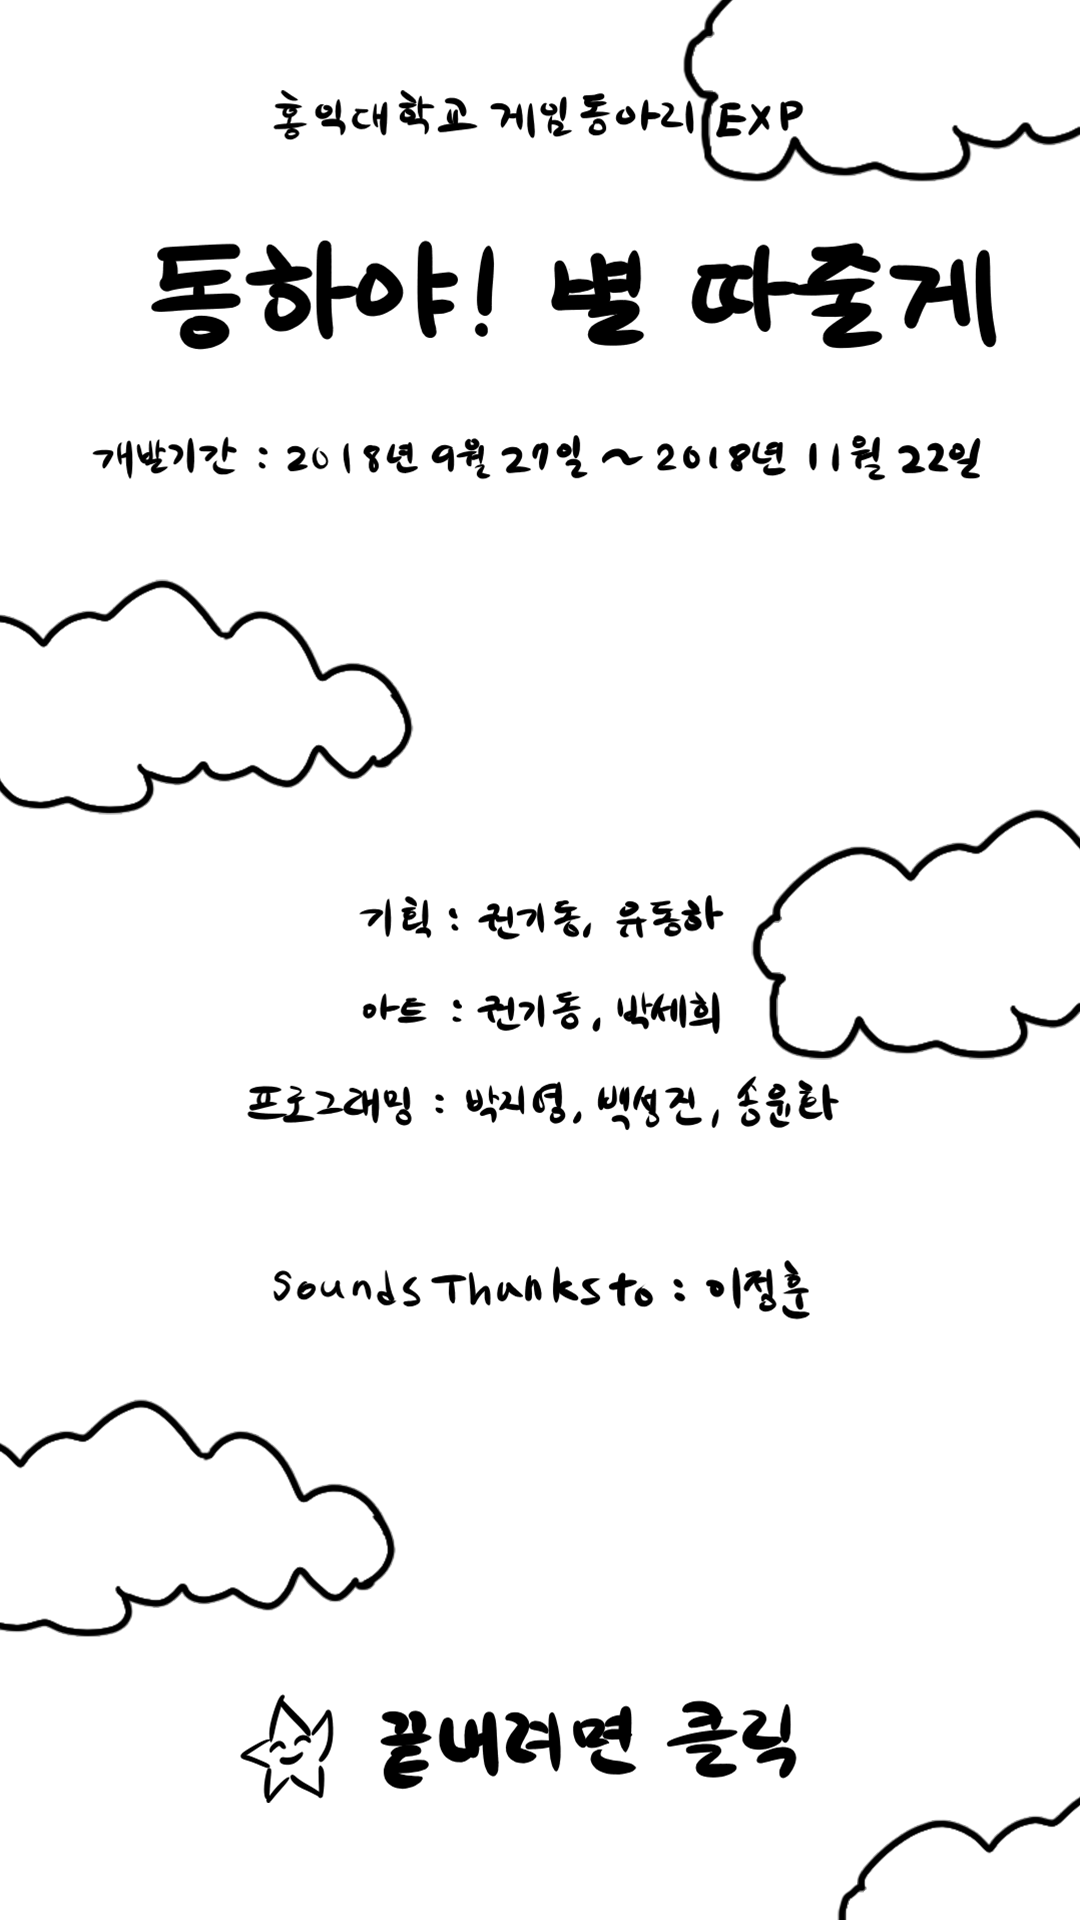 홍익대학교 게임동아리 EXP
동하야! 별 따줄게
개발기간 : 2018년 9월 27일 ~ 2018년 11월 22일
기획 : 권기동, 유동하
아트 : 권기동, 박세희
프로그래밍 : 박지영, 백성진, 송윤화
Sounds Thanks to : 이정훈
끝내려면 클릭